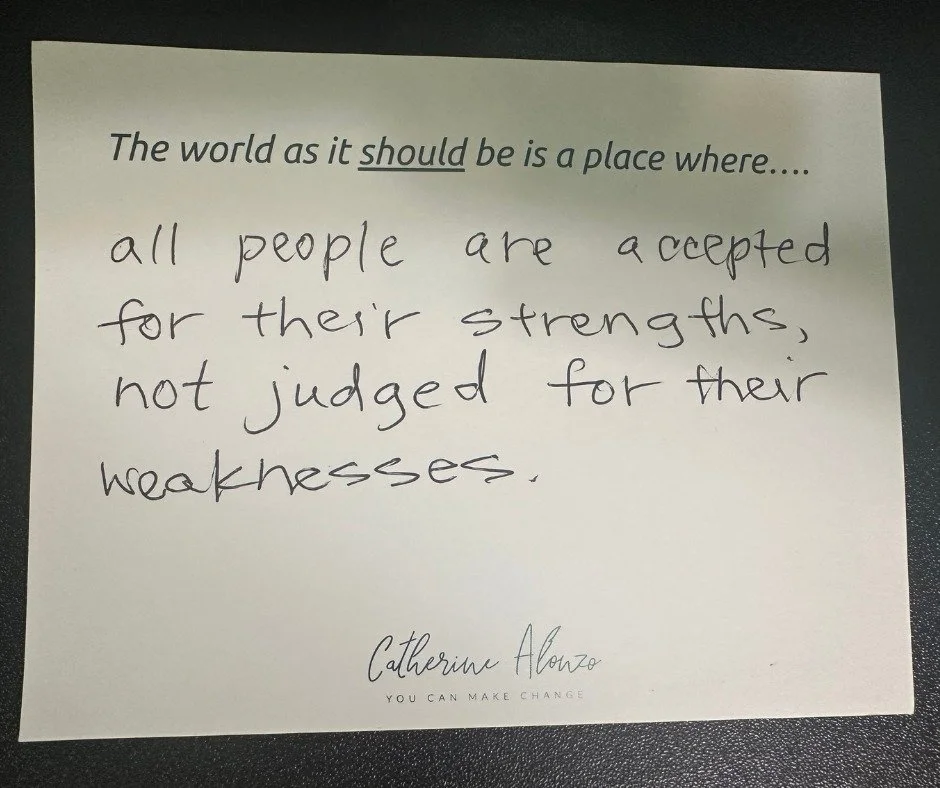 The world as it should be is a place where....
all people are accepted
for their strengths,
not judged for their
weaknesses.
Catherine Alonzo
YOU CAN MAKE CHANGE